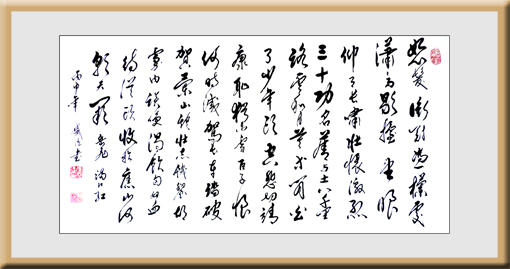 怒髮衝冠憑欄處
瀟瀟雨歇擡望眼
仰天長嘯壯懷激烈
三十功名塵与土八千里
路雲和月莫等閒白
了少年頭空悲切靖
康恥猶未雪臣子恨
何時滅駕長車踏破
賀蘭山缺壯志飢餐胡
虜肉笑談渴飲匈奴血
待從頭收拾舊山河
朝天闕 岳飛 滿江紅
丙申年 書